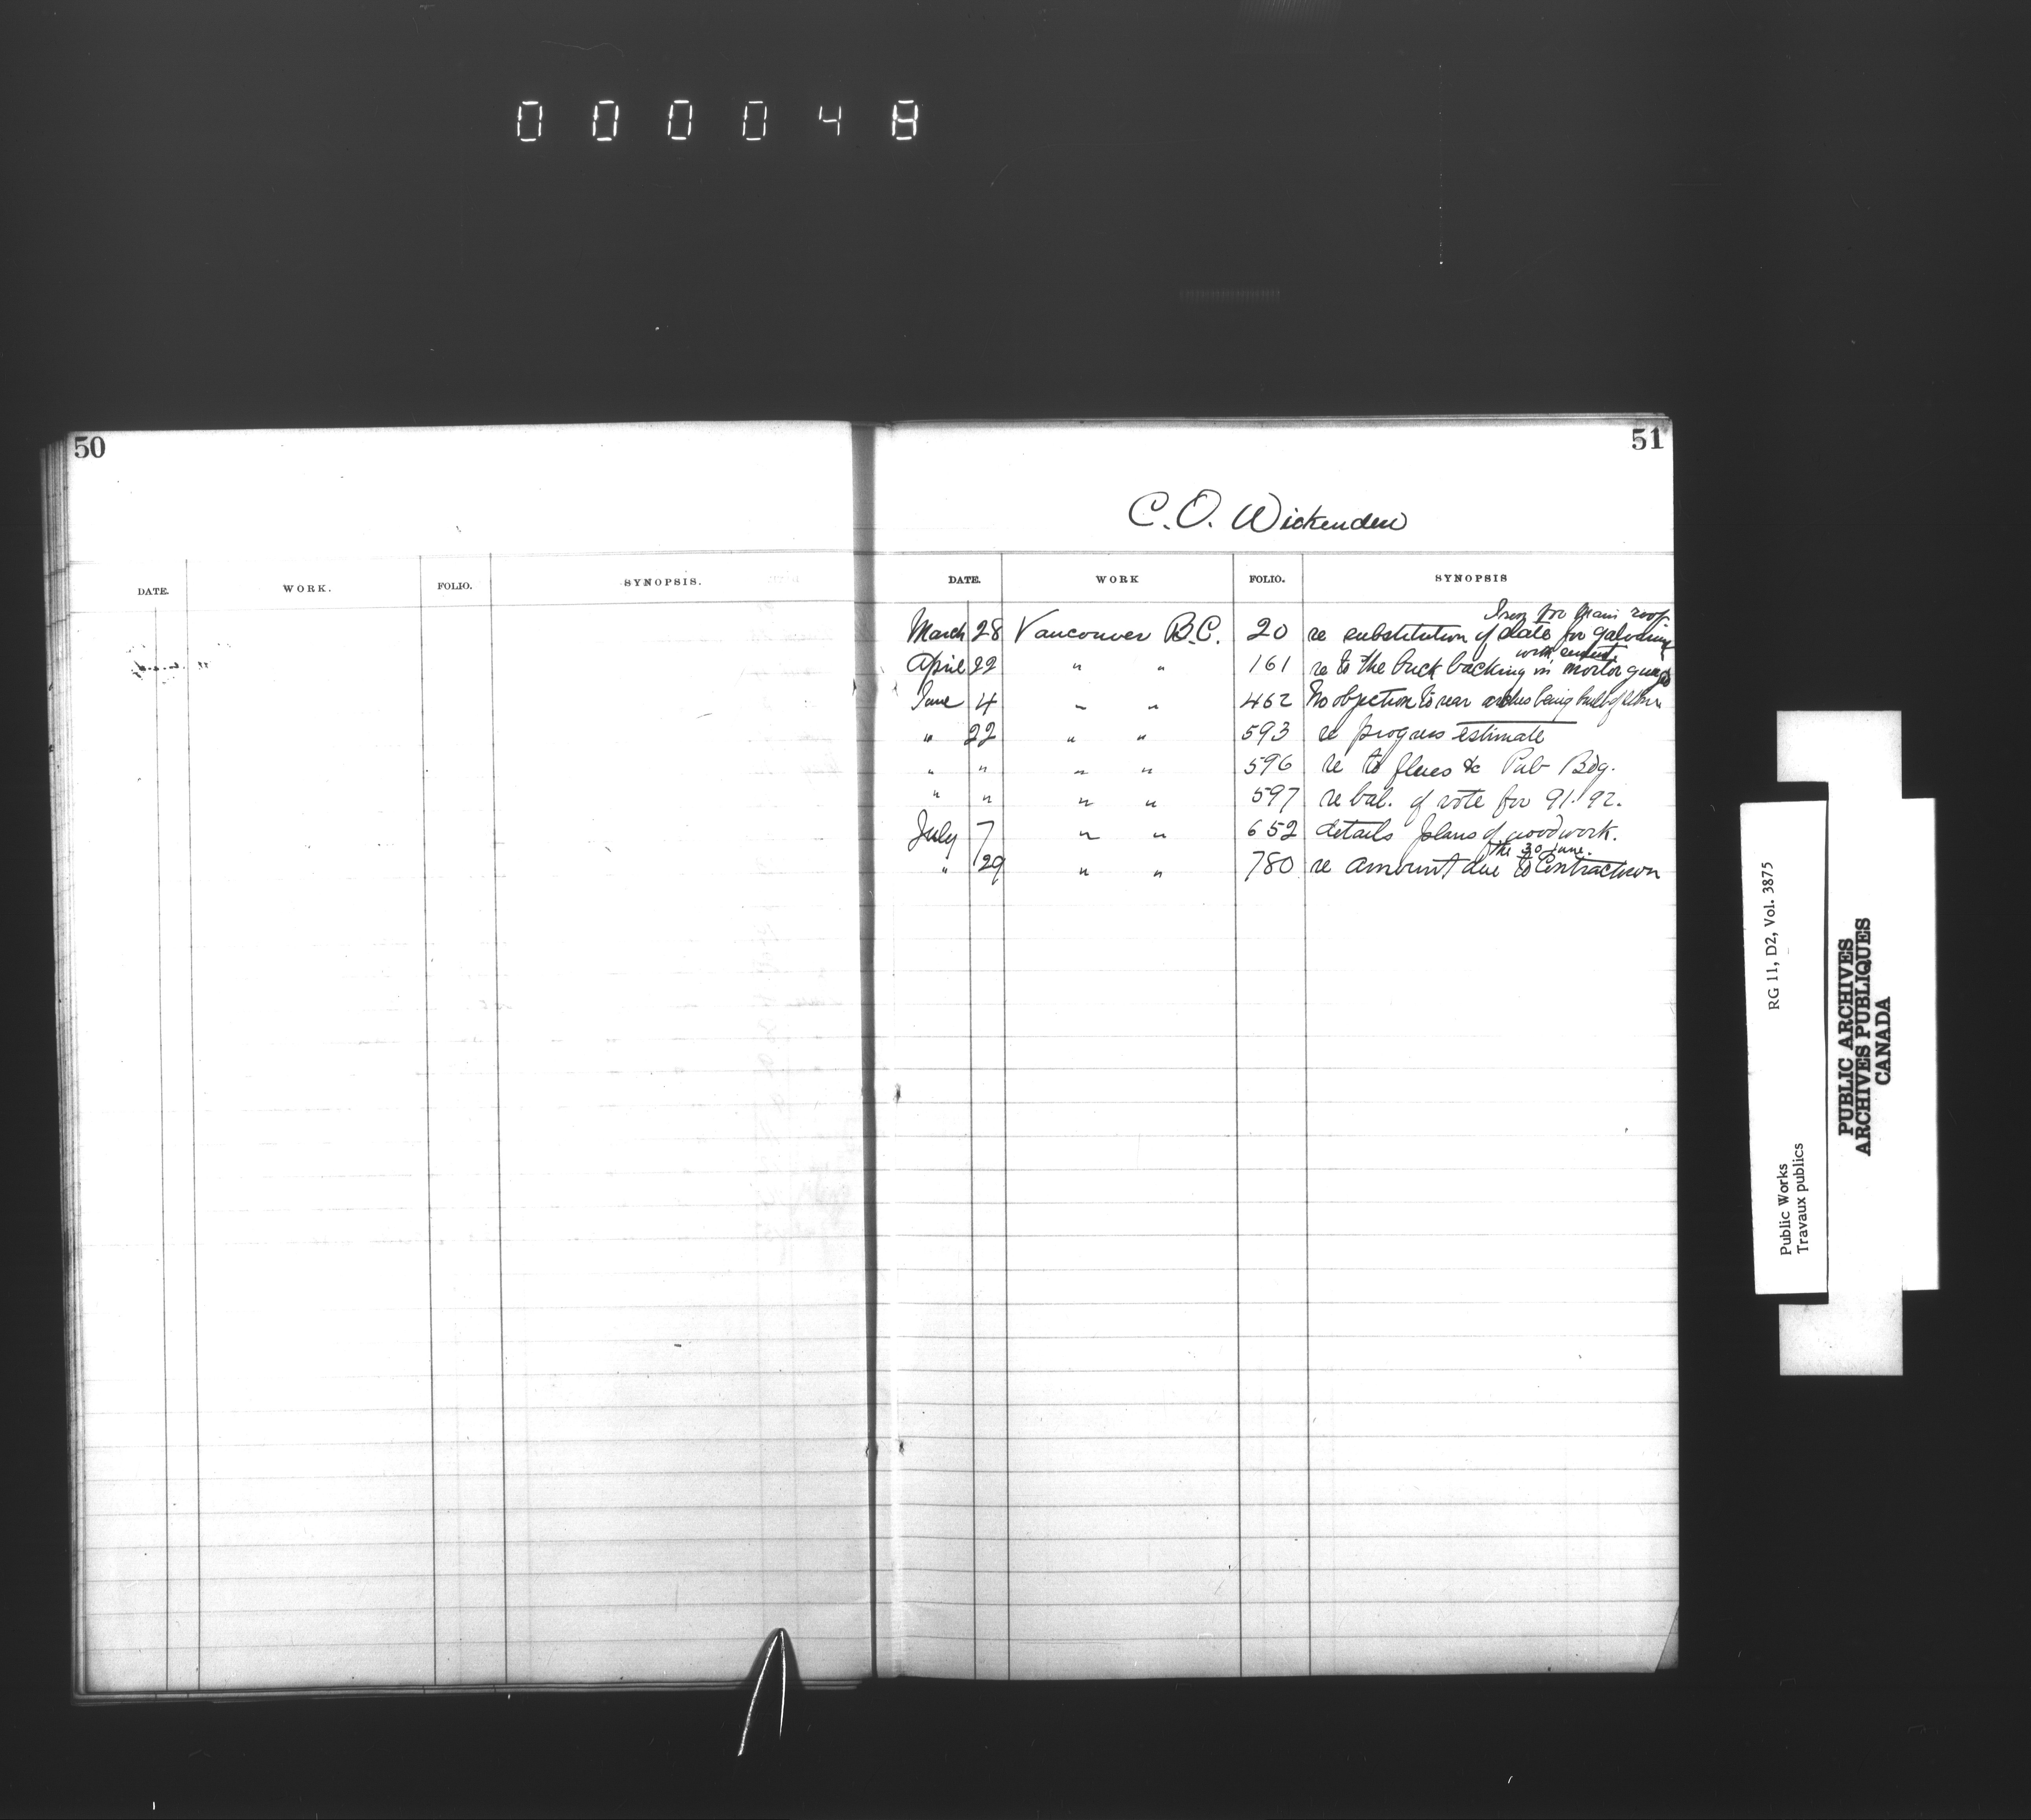 000048
50
DATE. WORK. FOLIO. SYNOPSIS.
51
C. O. Wickenden
DATE. WORK FOLIO. SYNOPSIS
Iron for main roof
March 28 Vancouver B.C. 20 re substitution of slate for
with cement
April 22 " " 161 re to the brick backing in mortar
June 4 " " 462 No objection to rear arches being built of
" 22 " " 593 re progress estimate
" " " " 596 re to flues &c Pub Bdg.
" " " " 597 re bal. of vote for 91.92.
July 7 " " 652 details plans of woodwork.
the 30 June.
" 29 " " 780 re amount due to Contractors
RG 11, D2, Vol. 3875
Public Works
Travaux publics
PUBLIC ARCHIVES
ARCHIVES PUBLIQUES
CANADA